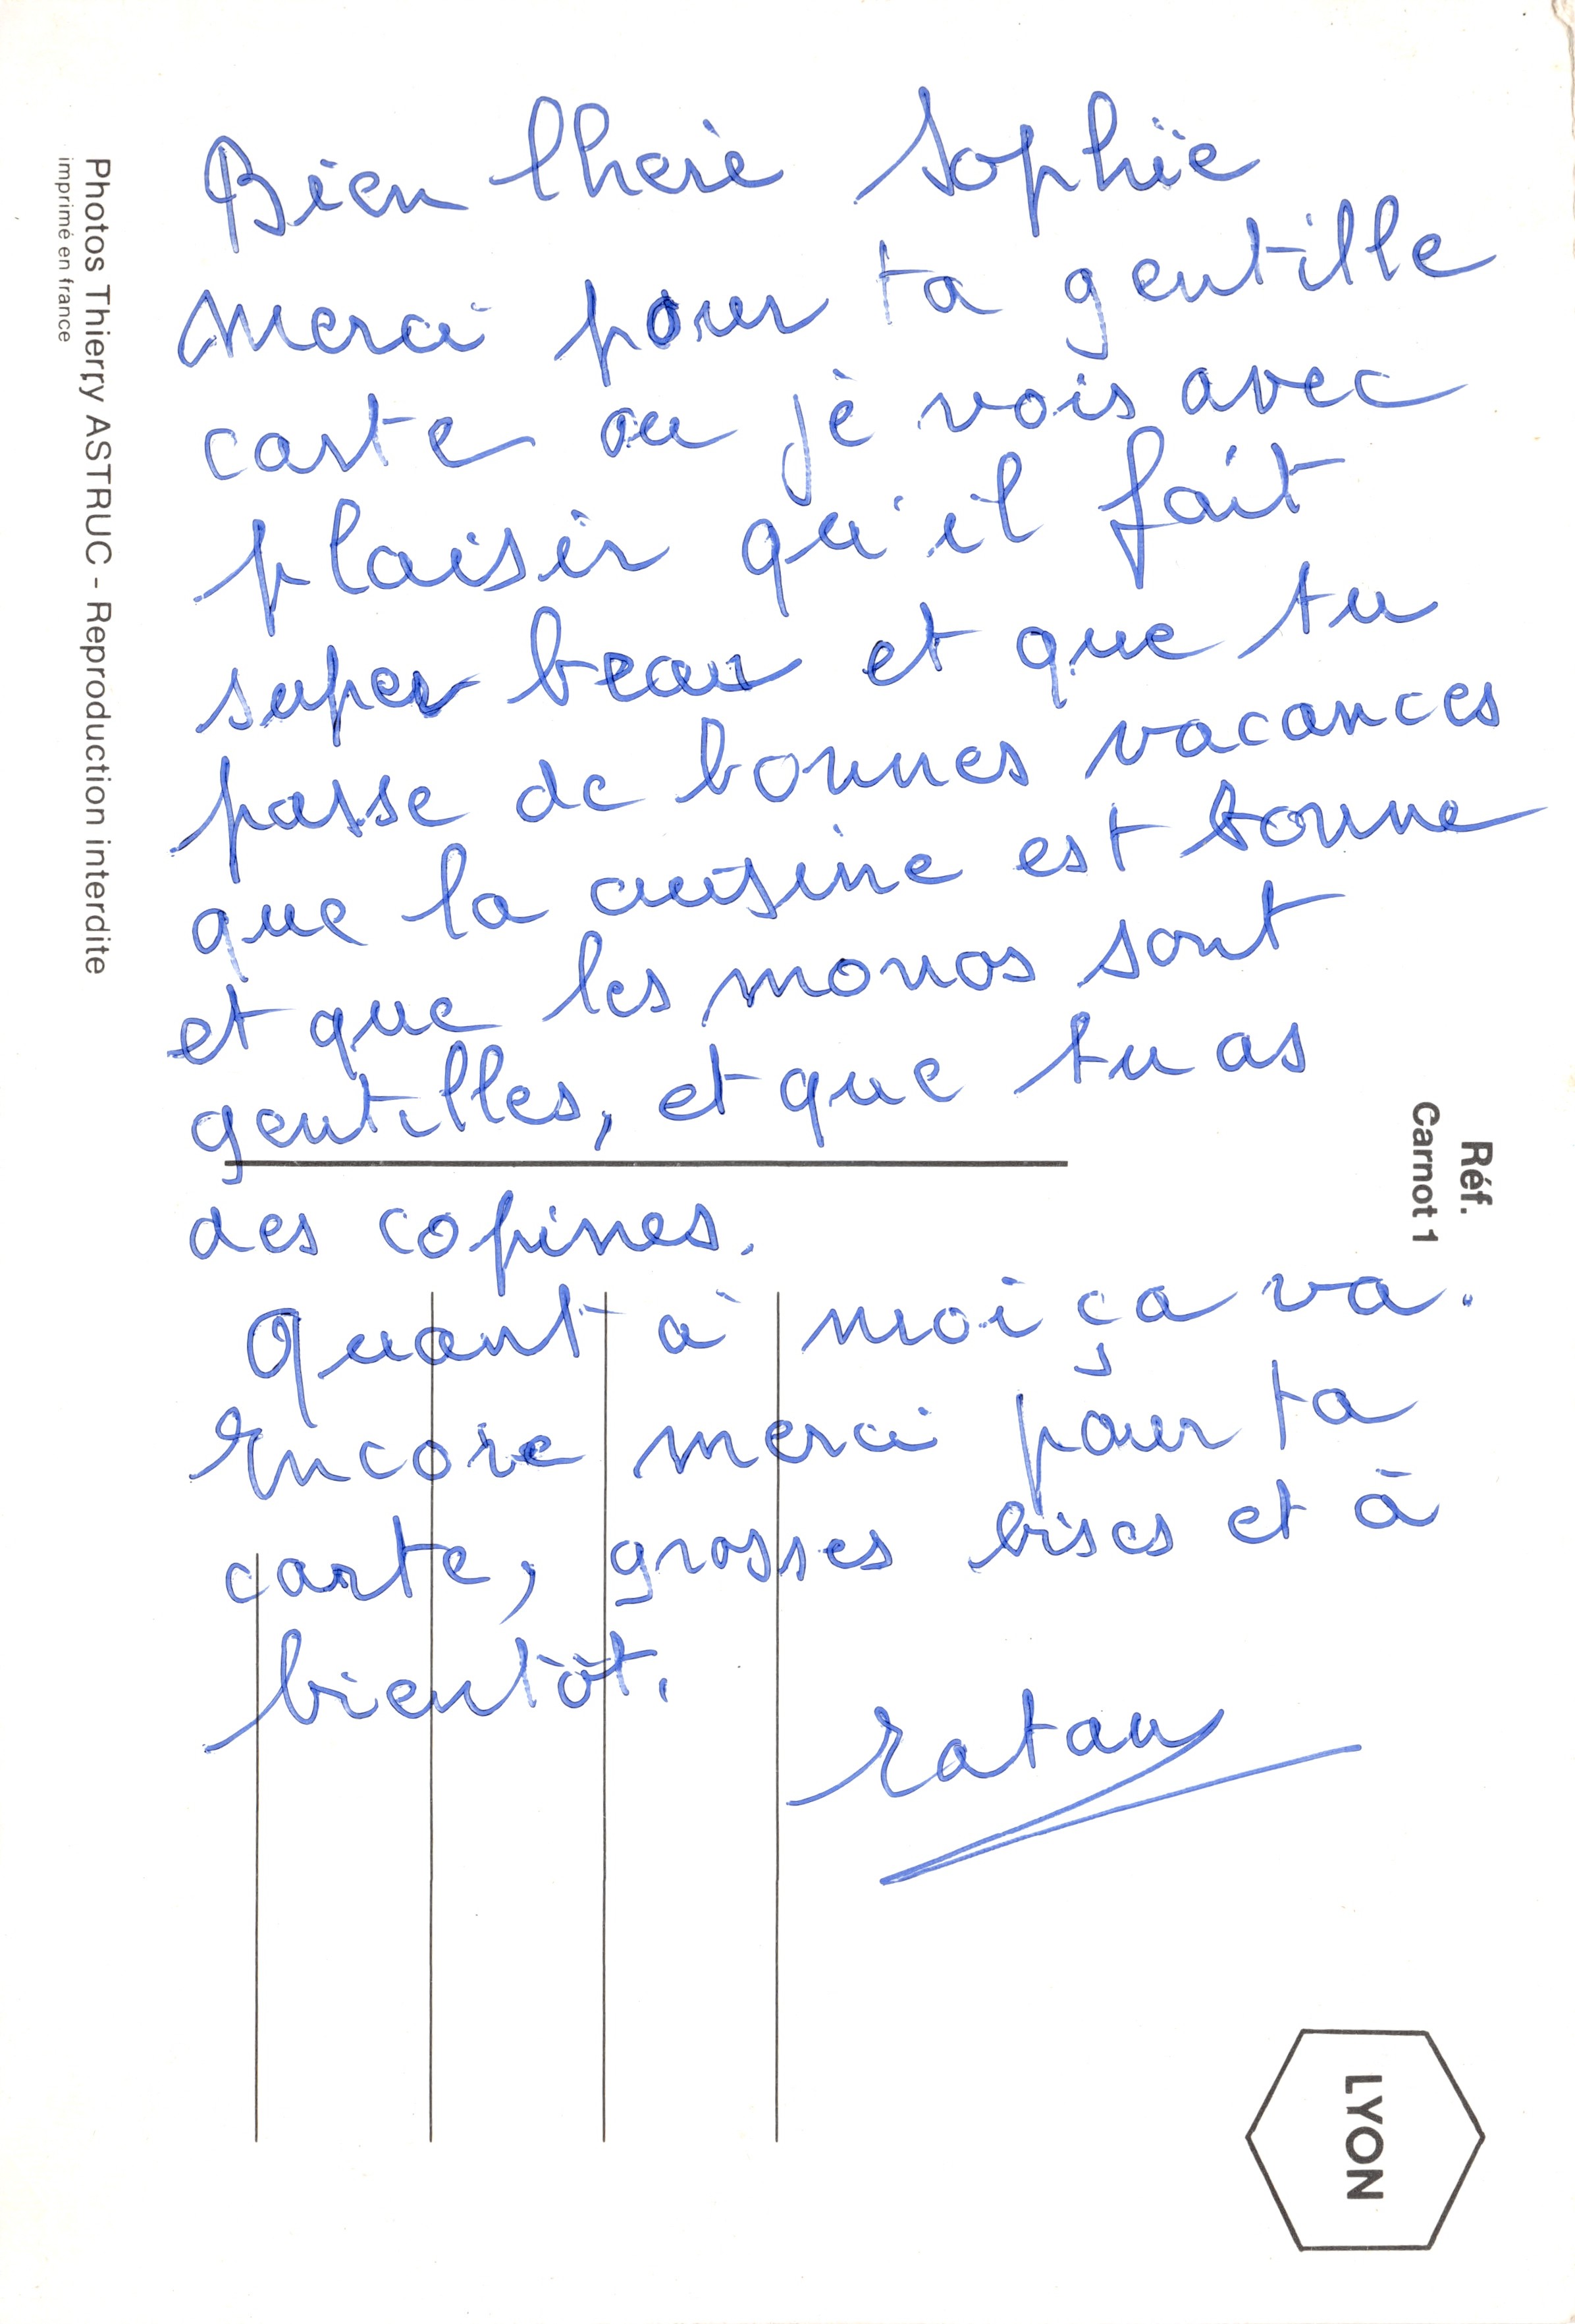 Bien chère Sophie
merci pour ta gentille
carte ou je vois avec
plaisir qu'il fait
super beau et que tu
passe de bonnes vacances
que la cuisine est bonne
et que les monos sont
gentilles, et que tu as
des copines.
Quant à moi ça va.
Encore merci pour ta
carte, grosses bises et à
bientôt.
ratau
Photos Thierry ASTRUC - Reproduction interdite
imprimé en france
Réf.
Carnot 1
LYON